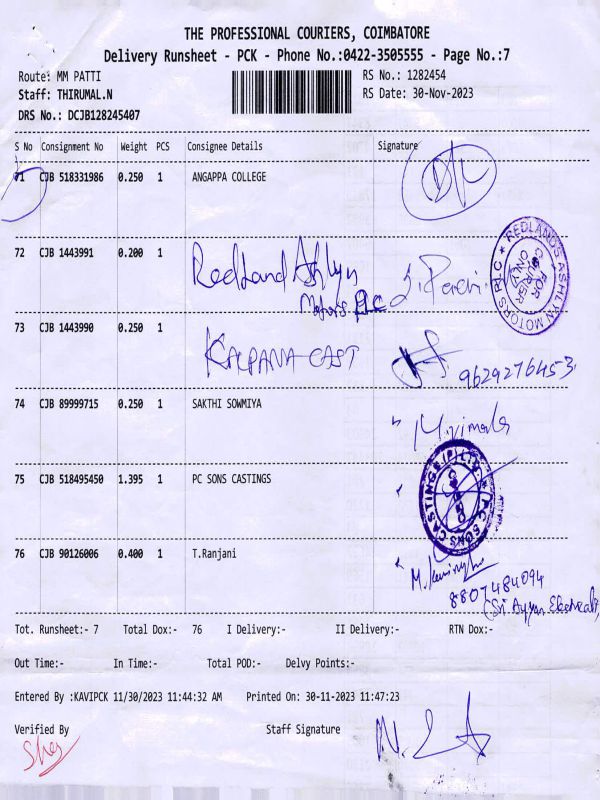 THE PROFESSIONAL COURIERS, COIMBATORE
Delivery Runsheet - PCK - Phone No.:0422-3505555 - Page No.:7
Route: MM PATTI RS No.: 1282454
Staff: THIRUMAL.N RS Date: 30-Nov-2023
DRS No.: DCJB128245407
S No Consignment No Weight PCS Consignee Details Signature
71 CJB 518331986 0.250 1 ANGAPPA COLLEGE
72 CJB 1443991 0.200 1 Redland Ashlyn
Motors PLC
REDLANDS ASHLYN MOTORS PLC
FOR COURIER ONLY
73 CJB 1443990 0.250 1 KALPANA CAST
9629276453
74 CJB 89999715 0.250 1 SAKTHI SOWMIYA
75 CJB 518495450 1.395 1 PC SONS CASTINGS
P.C SONS CASTINGS (P) LTD
76 CJB 90126006 0.400 1 T.Ranjani
8807484094
(Sri Ayyan Electricals)
Tot. Runsheet:- 7 Total Dox:- 76 I Delivery:- II Delivery:- RTN Dox:-
Out Time:- In Time:- Total POD:- Delvy Points:-
Entered By :KAVIPCK 11/30/2023 11:44:32 AM Printed On: 30-11-2023 11:47:23
Verified By Staff Signature